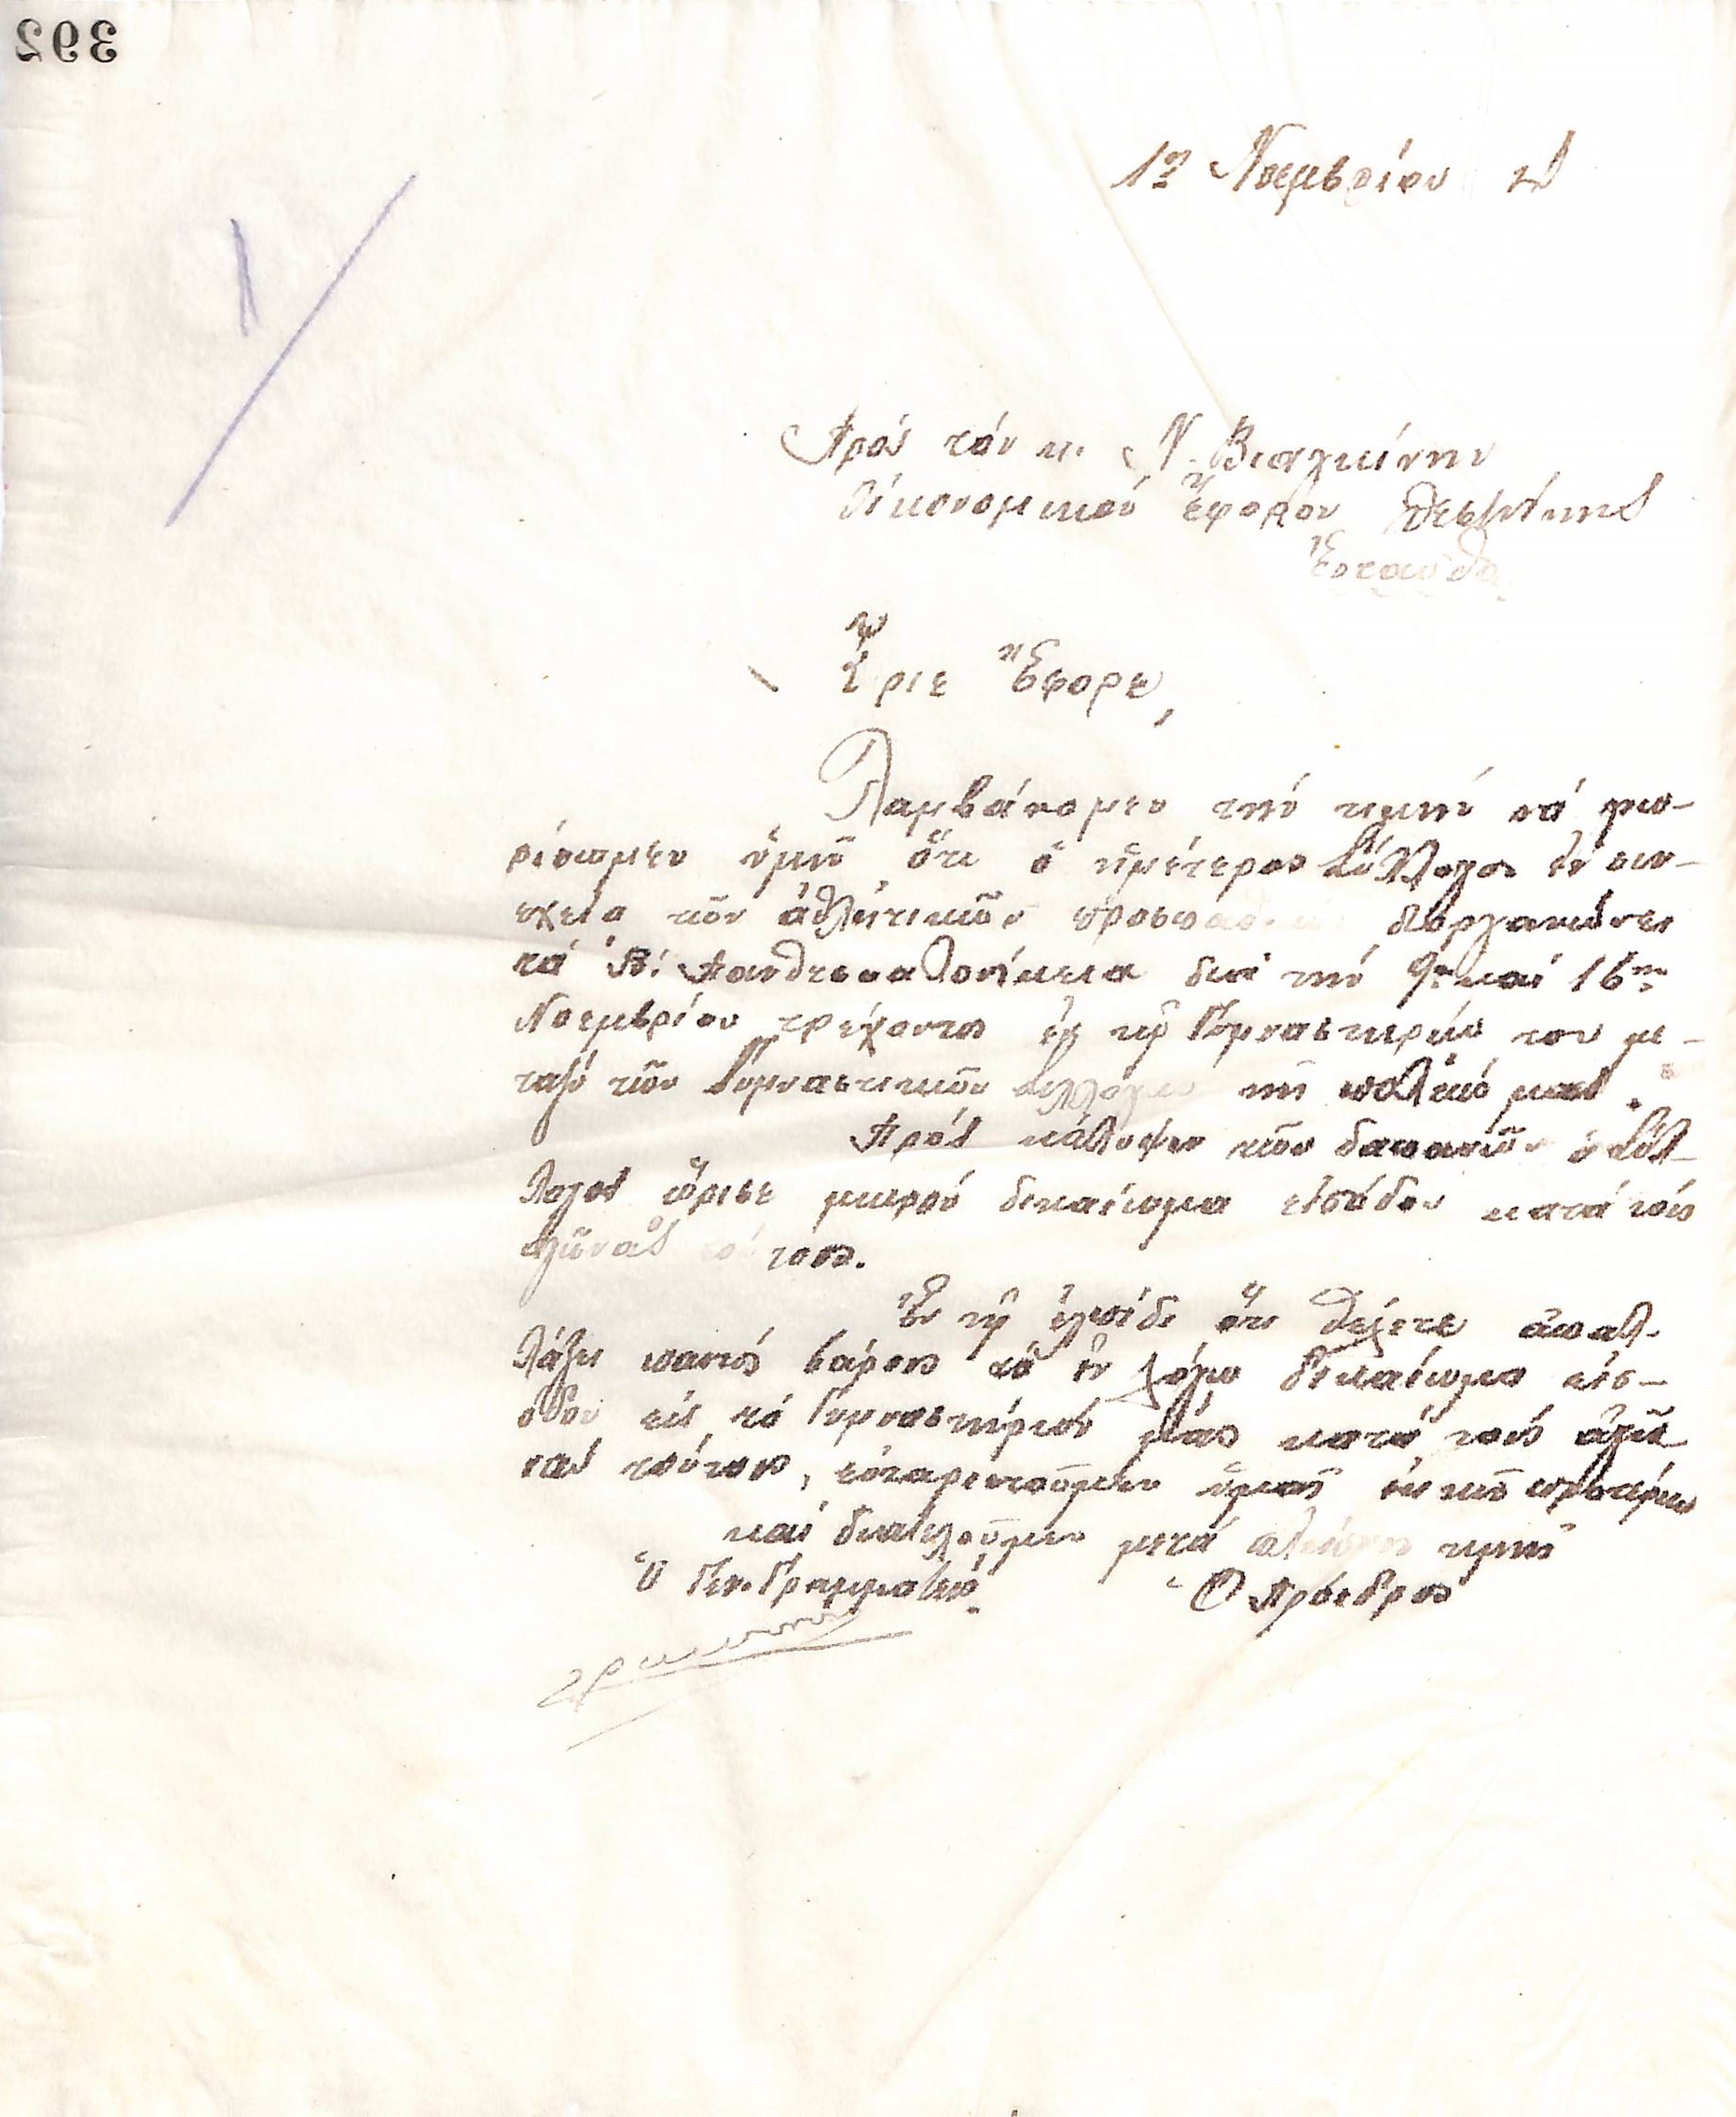 392
1η Νοεμβρίου
Πρός τόν κ. Ν.
Οἰκονομικόν Ἔφορον Θεσ/νίκης
Ἐνταῦθα
Κύριε Ἔφορε,
Λαμβάνομεν τήν τιμήν νά γνω-
ρίσωμεν ὑμῖν ὅτι ὁ ἡμέτερος Σύλλογος ἐν συν-
εχεία τῶν ἀθλητικῶν διοργανώνει
τά Πανθεσσαλονίκεια διά τήν 9ην καί 16ην
Νοεμβρίου τρέχοντος ἐν τῷ Γυμναστηρίῳ του με-
ταξύ τῶν Γυμναστικῶν Συλλόγων τῆς πόλεώς μας.
Πρός κάλυψιν τῶν δαπανῶν ὁ Σύλ-
λογος ὥρισε μικρόν δικαίωμα εἰσόδου κατά τούς
ἀγῶνας τούτους.
Ἐν τῇ ἐλπίδι ὅτι θέλετε ἀπαλ-
λάξει παντός βάρους τό ἐν λόγῳ δικαίωμα εἰσ-
όδου εἰς τό Γυμναστήριόν μας κατά τούς ἀγῶ-
νας τούτους, εὐχαριστοῦμεν ὑμᾶς ἐκ τῶν προτέρων
καί διατελοῦμεν μετά πλείστης τιμῆς
Ὁ Γεν. Γραμματεύς Ὁ Πρόεδρος